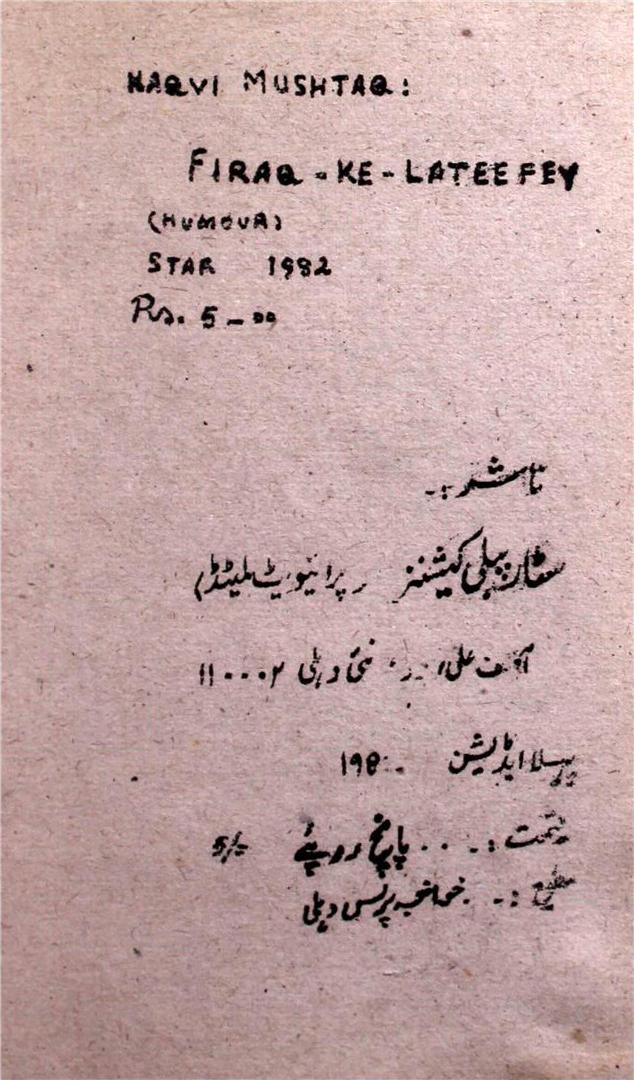 NAQVI MUSHTAQ:
FIRAQ-KE-LATEEFEY
(HUMOUR)
STAR 1982
Rs. 5-00
ناشر :۔
سٹار پبلی کیشنز (پرائیویٹ لمیٹڈ)
آصف علی روڈ، نئی دہلی ۱۱۰۰۰۲
پہلا ایڈیشن
قیمت :۔ .. پانچ روپے 5/=
مطبع :۔ پریس دہلی